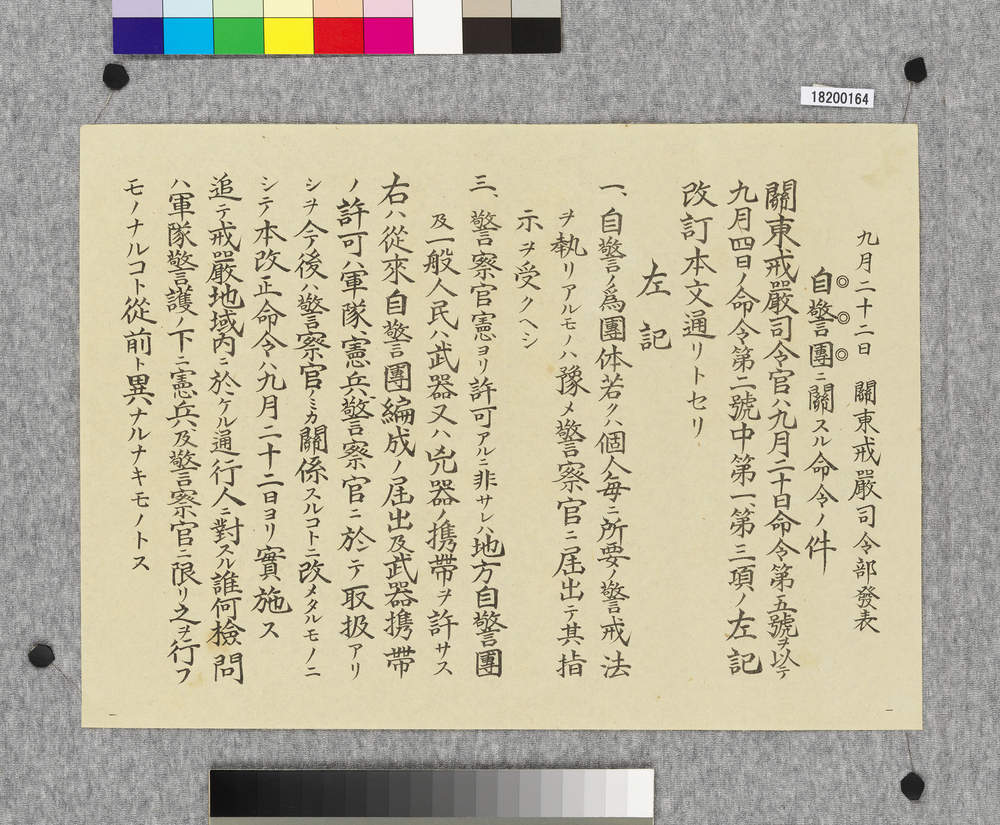 18200164
九月二十二日 關東戒嚴司令部發表
◎◎◎
自警團ニ關スル命令ノ件
關東戒嚴司令官ハ九月二十日命令第五號ヲ以テ
九月四日ノ命令第二號中第一、第三項ノ左記
改訂本文通リトセリ
左記
一、自警ノ爲團体若クハ個人每ニ所要ノ警戒法
ヲ執リアルモノハ豫メ警察官ニ屆出テ其指
示ヲ受クヘシ
三、警察官憲ヨリ許可アルニ非サレハ地方自警團
及一般人民ハ武器又ハ兇器ノ携帶ヲ許サス
右ハ從來自警團編成ノ屆出及武器携帶
ノ許可ハ軍隊、憲兵、警察官ニ於テ取扱アリ
シヲ今後ハ警察官ノミカ關係スルコトニ改メタルモノニ
シテ本改正命令ハ九月二十二日ヨリ實施ス
追テ戒嚴地域內ニ於ケル通行人ニ對スル誰何檢問
ハ軍隊警護ノ下ニ憲兵、及警察官ニ限リ之ヲ行フ
モノナルコト從前ト異ナルナキモノトス